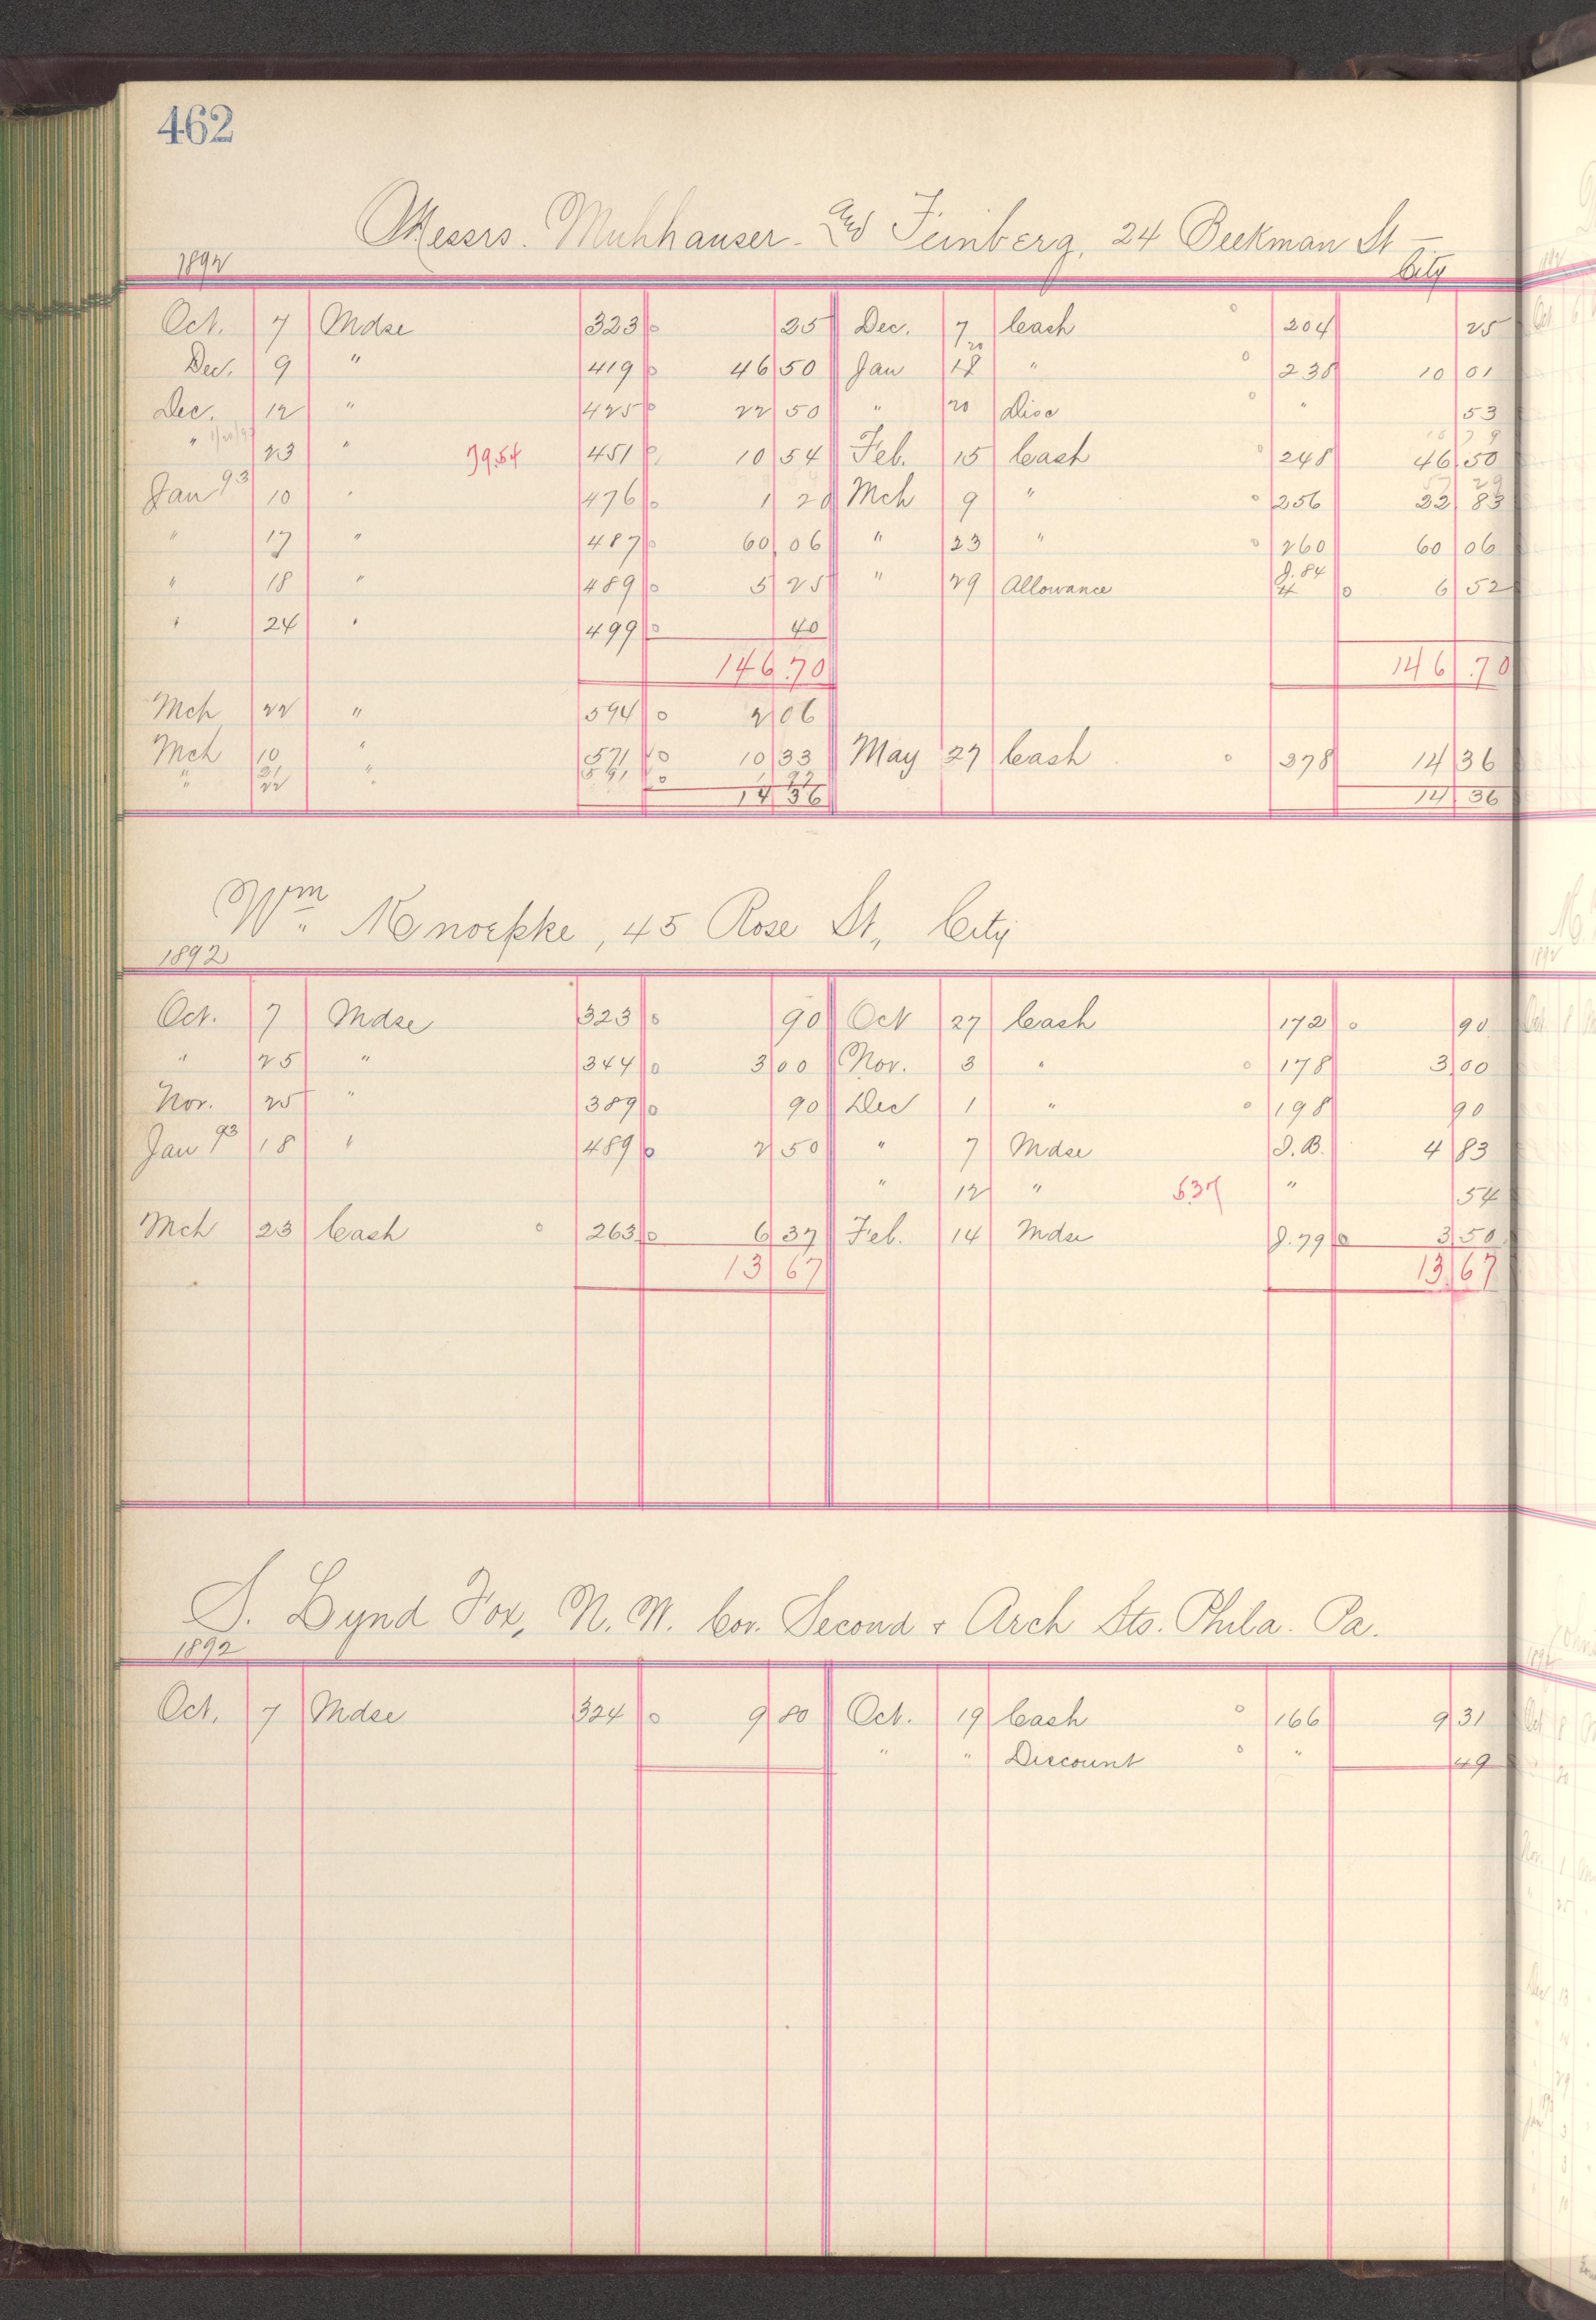 462
Messrs. Muhhauser and Feinberg, 24 Beekman St -
City
1892
Oct. 7 Mdse 323 25 Dec. 7 Cash 204 25
Dec. 9 " 419 46 50 Jan 18 20 " 238 10 01
Dec. 12 " 425 22 50 " 20 Disc " 53
" 23 " 79.54 451 10 54 Feb. 15 Cash 248 46 50
Jan 93 10 " 476 1 20 Mch 9 " 256 22 83
" 17 " 487 60 06 " 23 " 260 60 06
" 18 " 489 5 25 " 29 Allowance J. 84 6 52
" 24 " 499 40
146.70 146.70
Mch 22 " 594 2 06
Mch 10 " 571 10 33 May 27 Cash 378 14 36
" 21 " 591 1 97
22
14 36 14 36
Wm. Knoepke, 45 Rose St., City
1892
Oct. 7 Mdse 323 90 Oct 27 Cash 172 90
" 25 " 344 3 00 Nov. 3 " 178 3 00
Nov. 25 " 389 90 Dec 1 " 198 90
Jan 93 18 " 489 2 50 " 7 Mdse I. B. 4 83
" 12 " 5.37 " 54
Mch 23 Cash 263 6 37 Feb. 14 Mdse J. 79 3 50
13 67 13 67
S. Lynd Fox, N. W. Cor. Second & Arch Sts. Phila. Pa.
1892
Oct. 7 Mdse 324 9 80 Oct. 19 Cash 166 9 31
" " Discount " 49